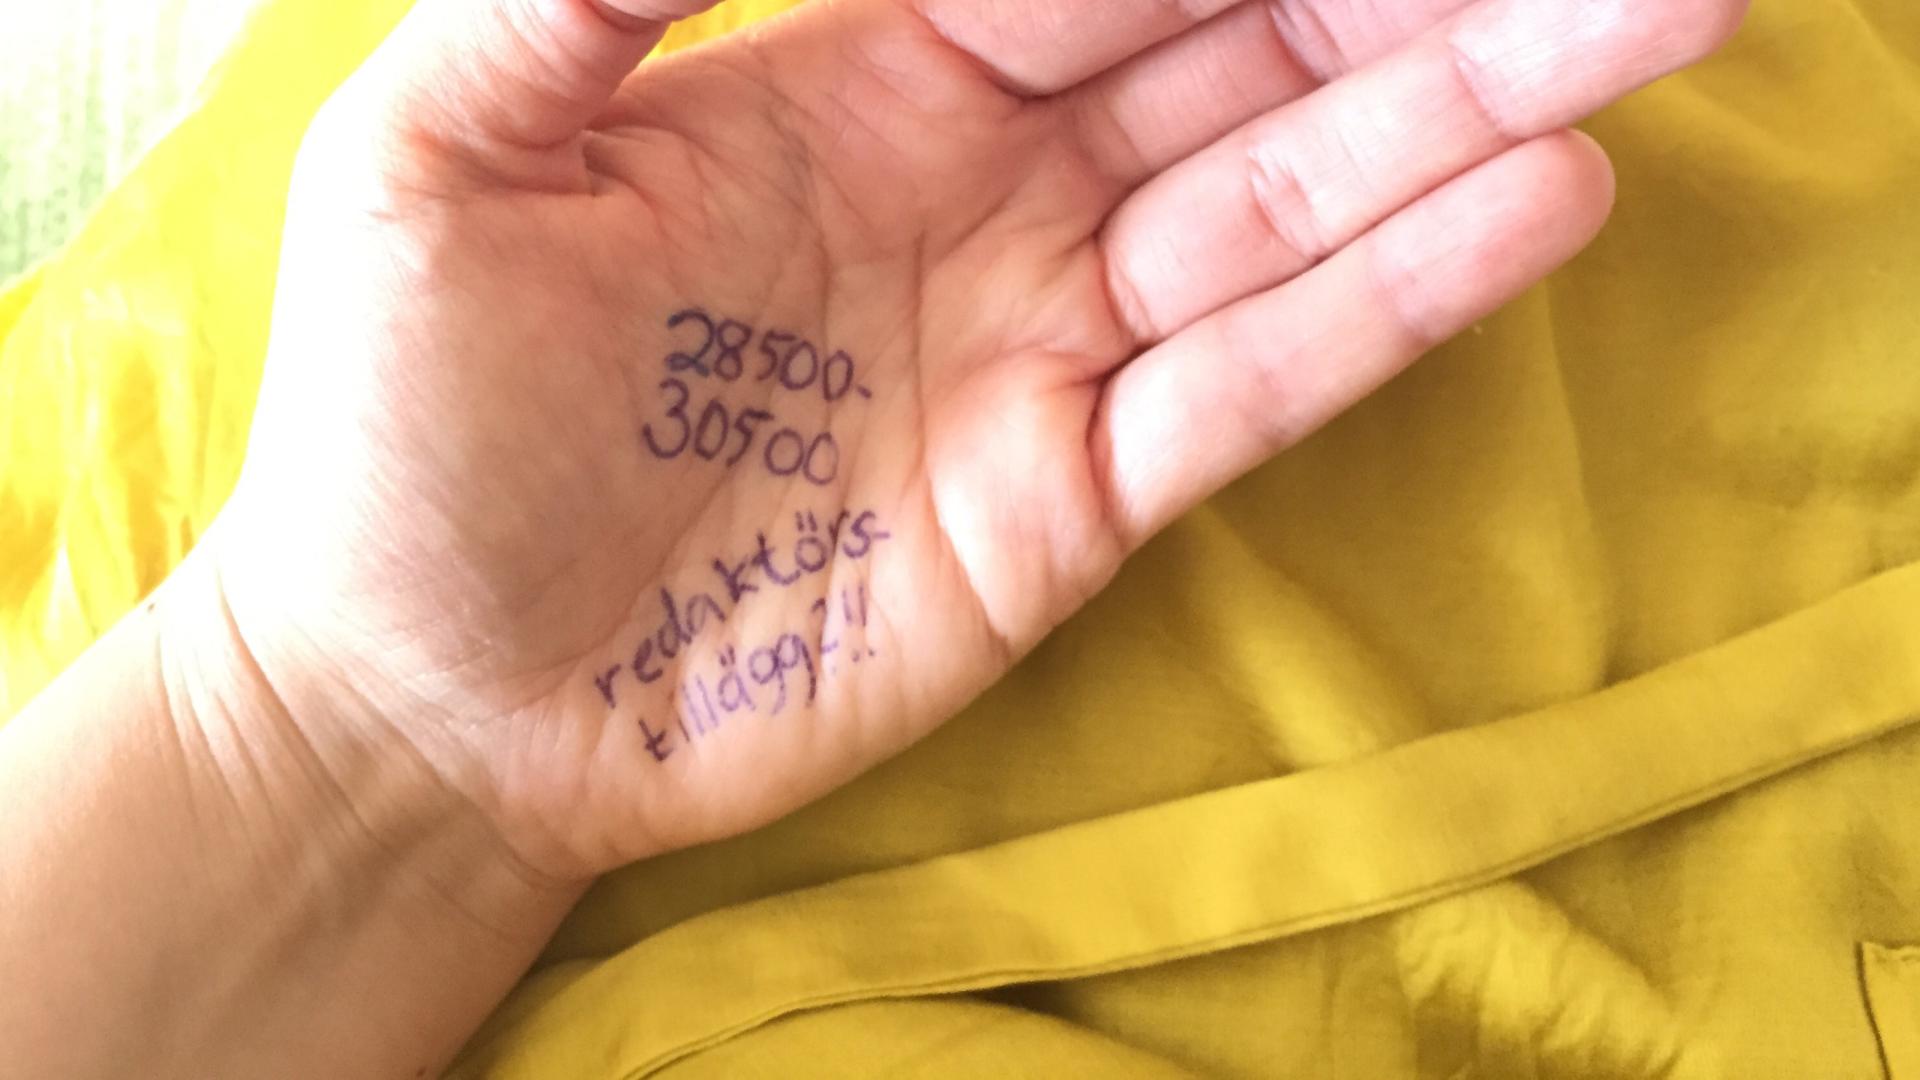 28500-
30500
redaktörs-
tillägg?!!